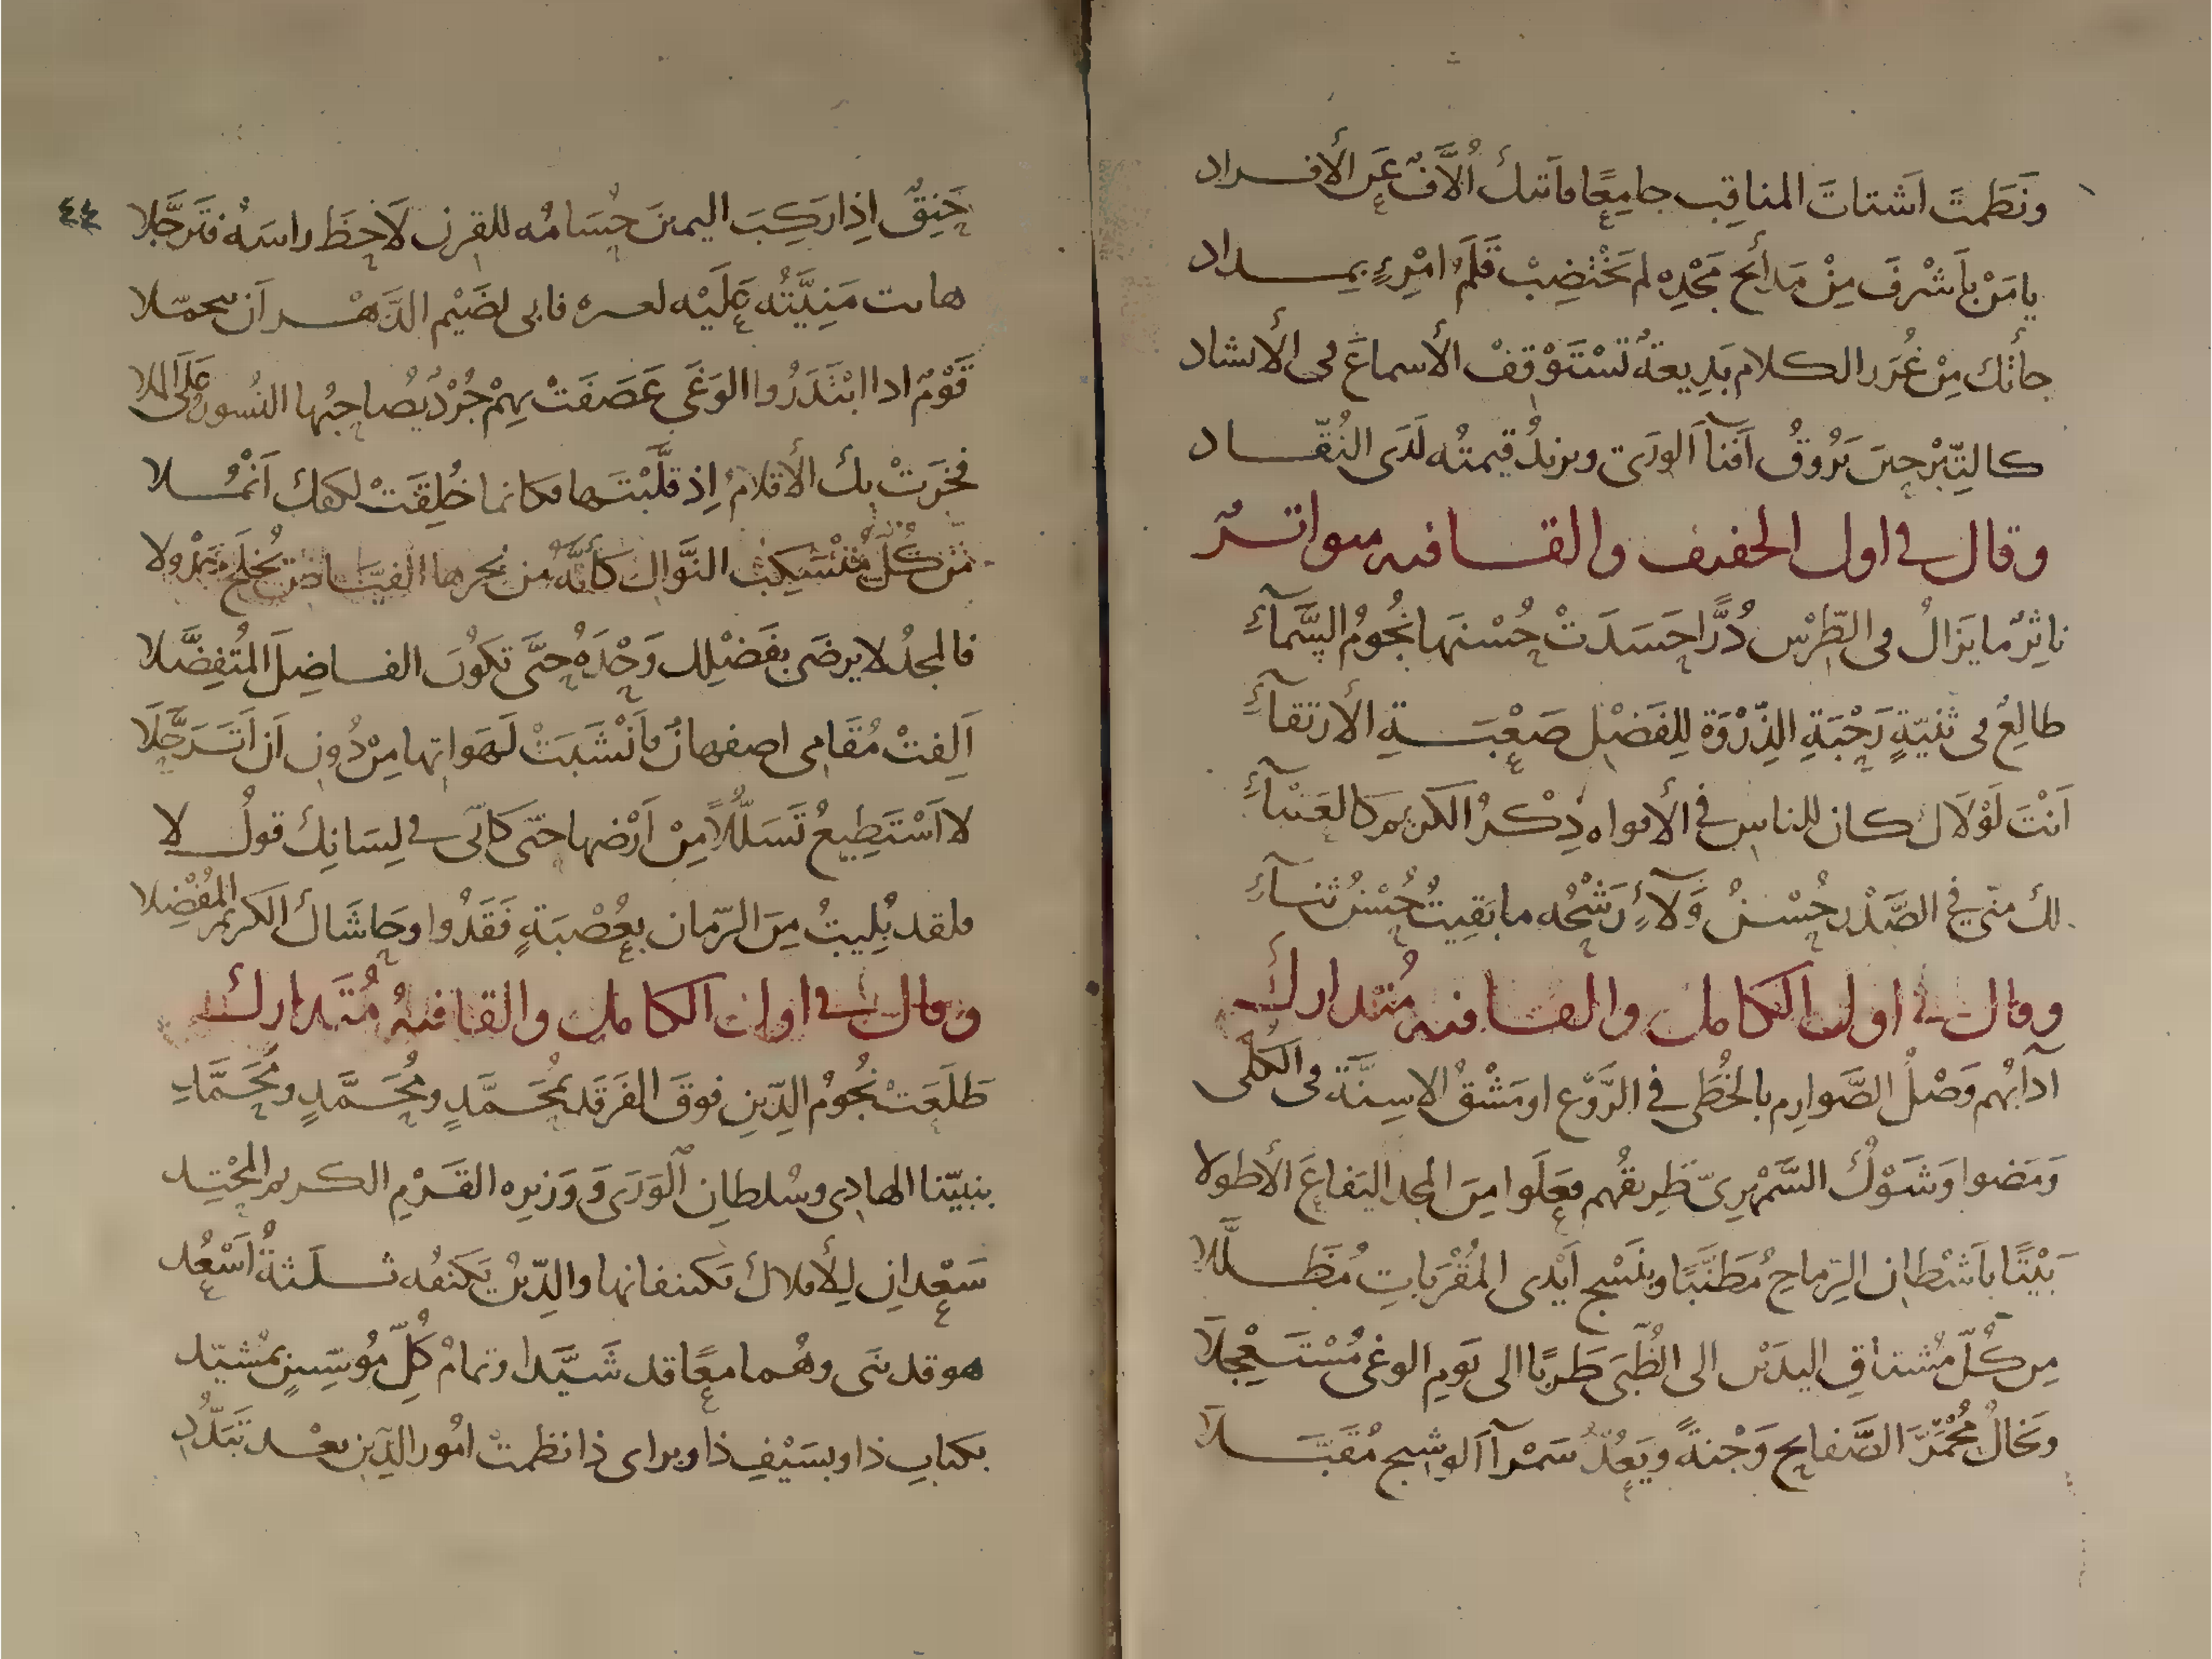 ونَظَمتَ اَشتاتَ المناقِب جامِعًا فاَتتك اُلاَّفٌ عَنِ الأفراد
يا مَنْ بِاَشْرَفَ مِنْ مَدائح مَجْدِه لم تَخْتضِبْ قَلَمُ امْرِءٍ بمداد
جأتك مِنْ غُرَر الكلام بَدِيعةٌ تَسْتَوْقِفْ الأسماعَ فى الأنشاد
كالتِّبْرِ حِينَ يَرُوقُ اَفنآ الورَى ويزيدُ قيمتُه لَدَى النُقّاد
وقال فى اول الخفيف والقافيه متواترٌ
ناثِرٌ ما يَزالُ فى الطِّرْسِ دُرًّا حَسَدَتْ حُسْنَها نُجُومُ السَّمآءِ
طالِعٌ فى ثنيّةٍ رَحْبَةِ الذِّرْوَة لِلفَضْلِ صَعْبَةِ الأرتقآءِ
اَنْتَ لَوْلاَكَ كان للناس فى الأفواه ذِكْرُ الكريم كالعَنْقآءِ
لك منّى فى الصَّدْر حُسْنُ وَلآءٍ رَشْحُه ما بَقِيتُ حُسْنُ ثنآءِ
وقال فى اول الكامل والقافيه مُتدارك
آدابُهم وَصْلُ الصَّوارِم بالخُطَى فى الرَّوْع او مَشْقُ الاسِنَّة فى الكُلَى
وَمَضوا وَشَوْكُ السَّمْهَرِىّ طَرِيقُهم فعَلَوا مِنَ المجد اليَفاعَ الأطولا
بَيْتًا بِاَشْطانِ الرِّماحِ مُطَنَّبًا وبنَسْج اَيْدى المُقْرَباتِ مُظَلَّلا
مِن كُلّ مُشتاقِ اليدَيْن الى الظُّبَى طَرِبًا الى يَومِ الوغى مُسْتَعْجِلاَ
ويَخالُ مُحْمَرَّ الصَّفايح وَجْنةً ويَعُدُّ سَمْرآ الوشيج مُقَبَّلاَ
٤٤
حَنِقٌ اِذا رَكِبَ اليمينَ حُسَامُه للقِرنِ لاَحَظَ راسَهُ فتَرَجَّلا
هابت مَنِيَّتُه عَلَيْه لعزه فابى لضَيْم الدَّهْر اَن يتحمّلا
قَوْمٌ اذا ابْتَدَرُوا الوَغَى عَصَفَتْ بِهِمْ جُرْدٌ يُصاحِبُها النُسورُ عَلَى الملا
فخَرَتْ بِك الأقلامُ اِذ قلَّبْتَها فكانما خُلِقَتْ لكفك اَنْمُلا
مِن كُلّ مُنْسَكِبِ النَّوالِ كَأنَّهُ من بحرها الفيّاض يُخلَج جَدْولا
فالمجدُ لا يرضَى بفَضْلِك وَحْدَهُ حتَّى تكوُنَ الفاضِلَ المُتفِضَّلا
اَلِفتْ مُقَامِى اصفهانُ فاَنْشَبَتْ لَهَواتِها مِنْ دُونِ اَن اَتَرَحَّلاَ
لا اَسْتَطِيعُ تَسَلُّلاً مِنْ اَرْضها حتّى كَأنّى فى لِسَانِك قولُ لا
فلقد بُلِيتُ مِنَ الزّمان بعُصْبَةٍ فَقَدُوا وحَاشَاك الكريم المُفْضِلا
وقال فى اول الكامل والقافيهُ مُتَدارك
طَلَعَتْ نُجُومُ الدِّينِ فوقَ الفَرَقَد بمُحَمَّدٍ ومُحَمَّدٍ ومُحَمَّدِ
بنبيّنا الهادِى وسُلطانِ الوَرَى وَوَزيرِه القَرْمِ الكريم المَحْتِد
سَعْدانِ لِلأفلاك تكنفانها والدِّينُ يَكنفُه ثلَثةُ اَسْعُد
هو قد بَنَى وهُما معًا قد شَيَّدا وتمامُ كُلِّ مُوسّسٍ بمُشيّد
بكتابِ ذا وبسَيْفِ ذا وبراى ذا نظمتْ امُور الدِّين بعْد تَبَدُّدِ